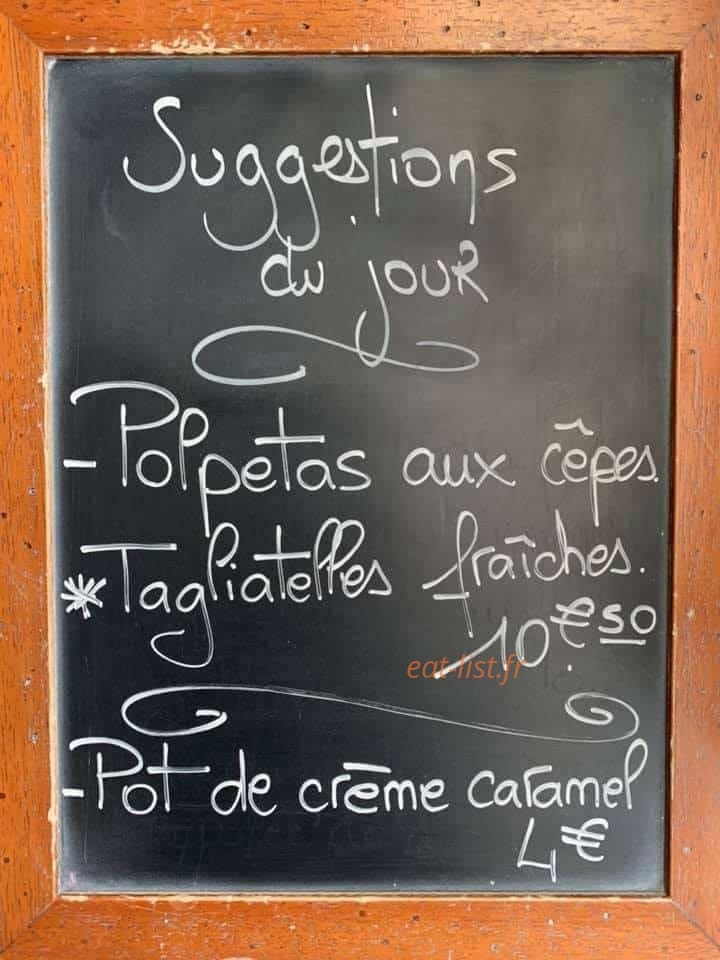 Suggestions
du jour
- Polpetas aux cêpes.
* Tagliatelles fraîches.
10€50
eat-list.fr
- Pot de crème caramel
4€